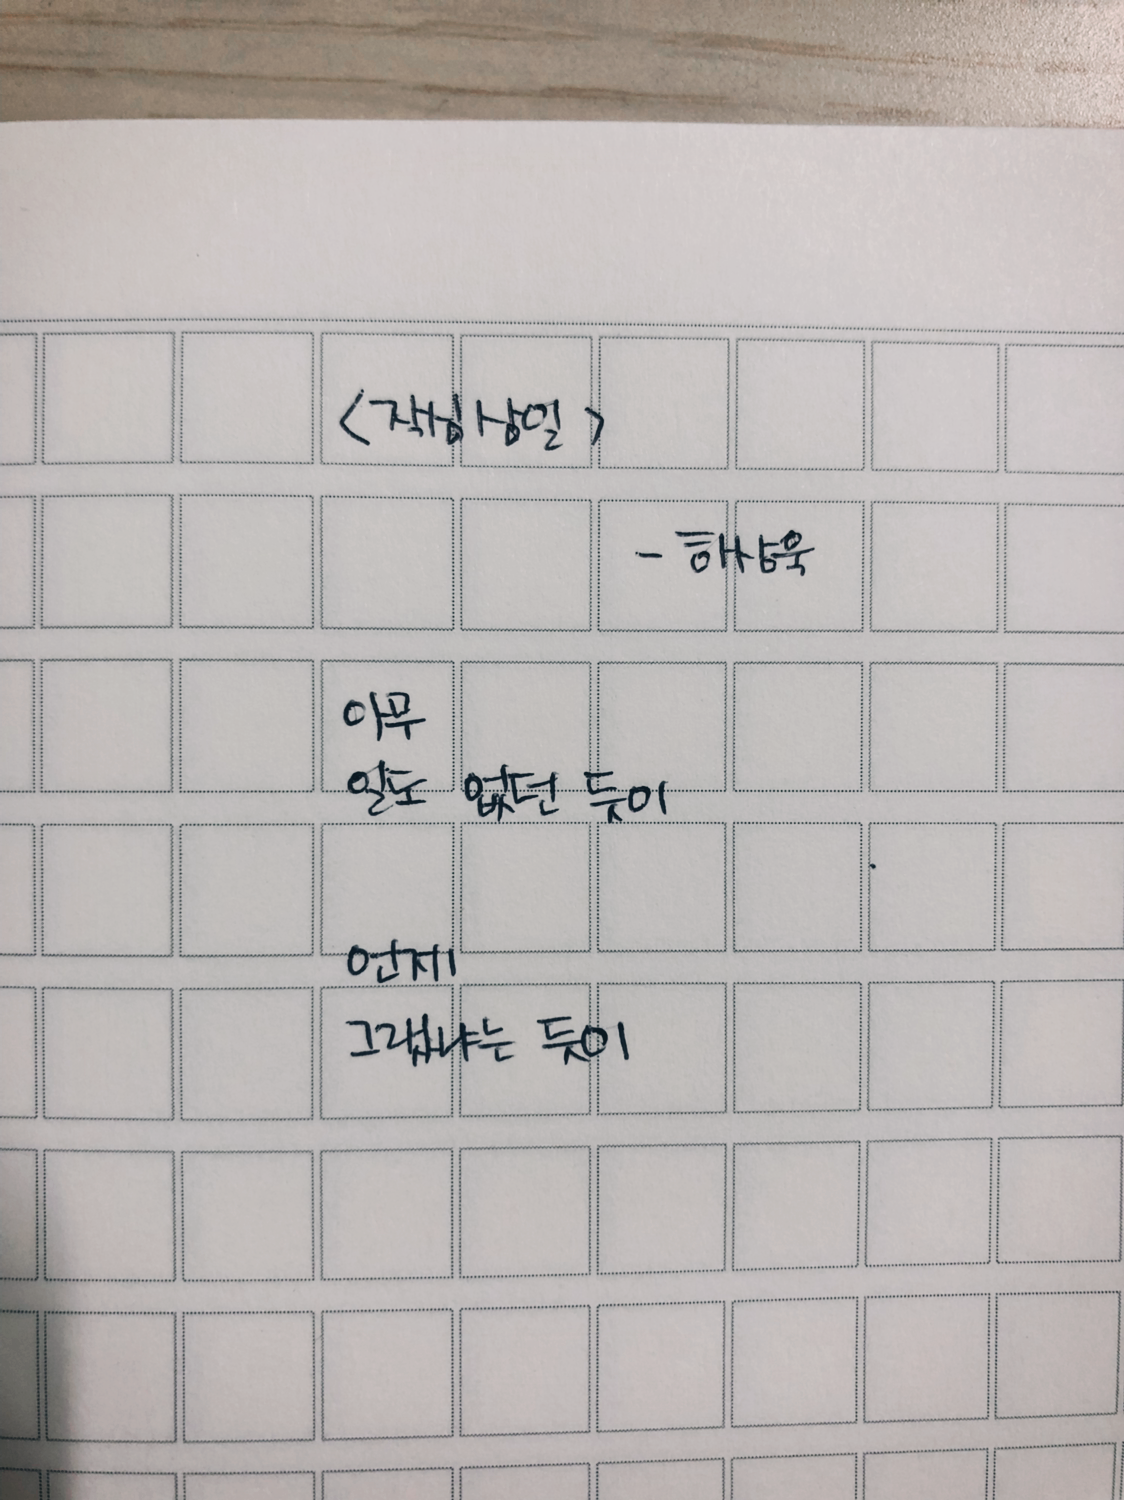 <작심삼일>
- 하상욱
아무
일도 없던 듯이
언제
그랬냐는 듯이